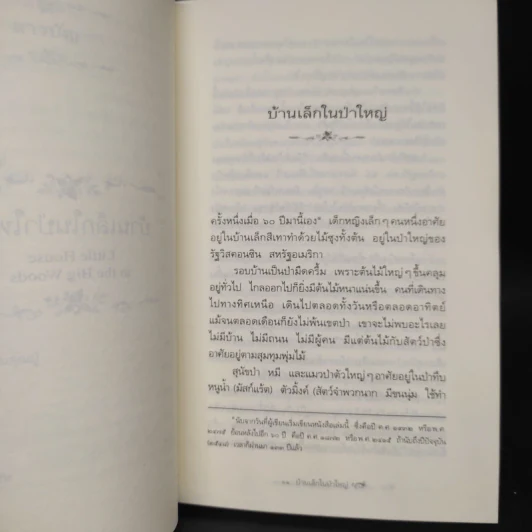 บ้านเล็กในป่าใหญ่
ครั้งหนึ่งเมื่อ ๖๐ ปีมานี้เอง* เด็กหญิงเล็กๆ คนหนึ่งอาศัย
อยู่ในบ้านเล็กสีเทาทำด้วยไม้ซุงทั้งต้น อยู่ในป่าใหญ่ของ
รัฐวิสคอนซิน สหรัฐอเมริกา
รอบบ้านเป็นป่ามืดครึ้ม เพราะต้นไม้ใหญ่ๆ ขึ้นคลุม
อยู่ทั่วไป ไกลออกไปก็ยิ่งมีต้นไม้หนาแน่นขึ้น คนที่เดินทาง
ไปทางทิศเหนือ เดินไปตลอดทั้งวันหรือตลอดอาทิตย์
แม้จนตลอดเดือนก็ยังไม่พ้นเขตป่า เขาจะไม่พบอะไรเลย
ไม่มีบ้าน ไม่มีถนน ไม่มีผู้คน มีแต่ต้นไม้กับสัตว์ป่าซึ่ง
อาศัยอยู่ตามสุมทุมพุ่มไม้
สุนัขป่า หมี และแมวป่าตัวใหญ่ๆ อาศัยอยู่ในป่าทึบ
หนูน้ำ (มัสก์แร้ต) ตัวมิ้งค์ (สัตว์จำพวกนาก มีขนนุ่ม ใช้ทำ
*นับจากวันที่ผู้เขียนเริ่มเขียนหนังสือเล่มนี้ ซึ่งคือปี ค.ศ. ๑๙๓๒ หรือ พ.ศ.
๒๔๗๕ ย้อนหลังไปอีก ๖๐ ปี คือปี ค.ศ. ๑๘๗๒ หรือ พ.ศ. ๒๔๑๕ ถ้านับถึงปีปัจจุบัน
เวลาก็ผ่านมา ปีแล้ว
บ้านเล็กในป่าใหญ่